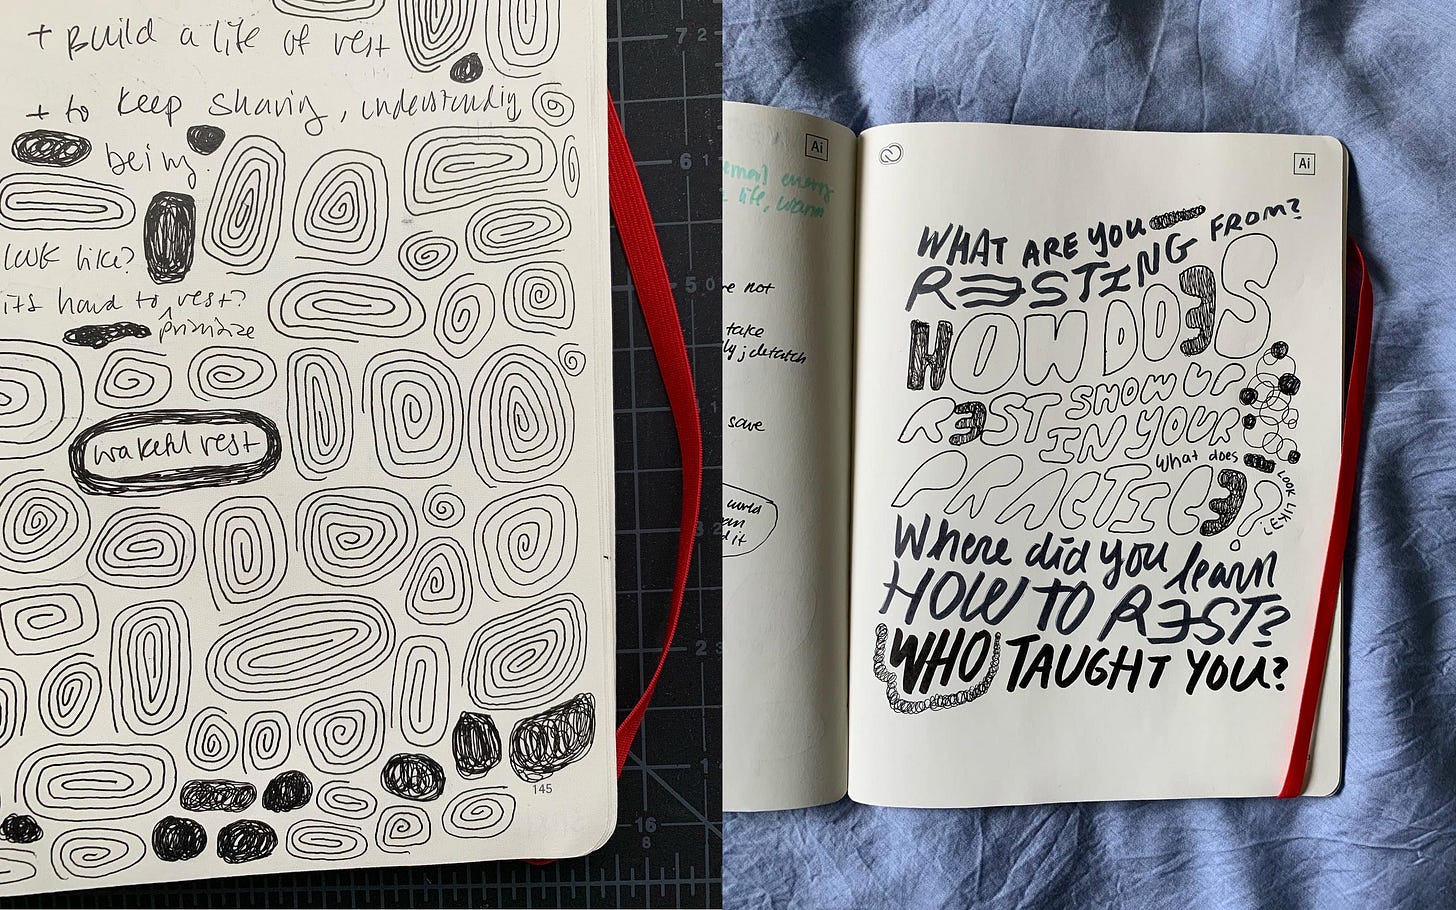 + Build a life of rest
+ to keep sharing, understanding
being.
look like?
its hard to rest?
prioritize
wakeful rest
145
7 2
6
5
2
1
16
8
Ai
email energy
life, warm
re not
take
ly, detatch
save
world
an
d it
Ai
WHAT ARE YOU
RESTING FROM?
HOW DOES
REST SHOW UP
IN YOUR
PRACTICE?
What does
LOOK LIKE?
Where did you learn
HOW TO REST?
WHO TAUGHT YOU?